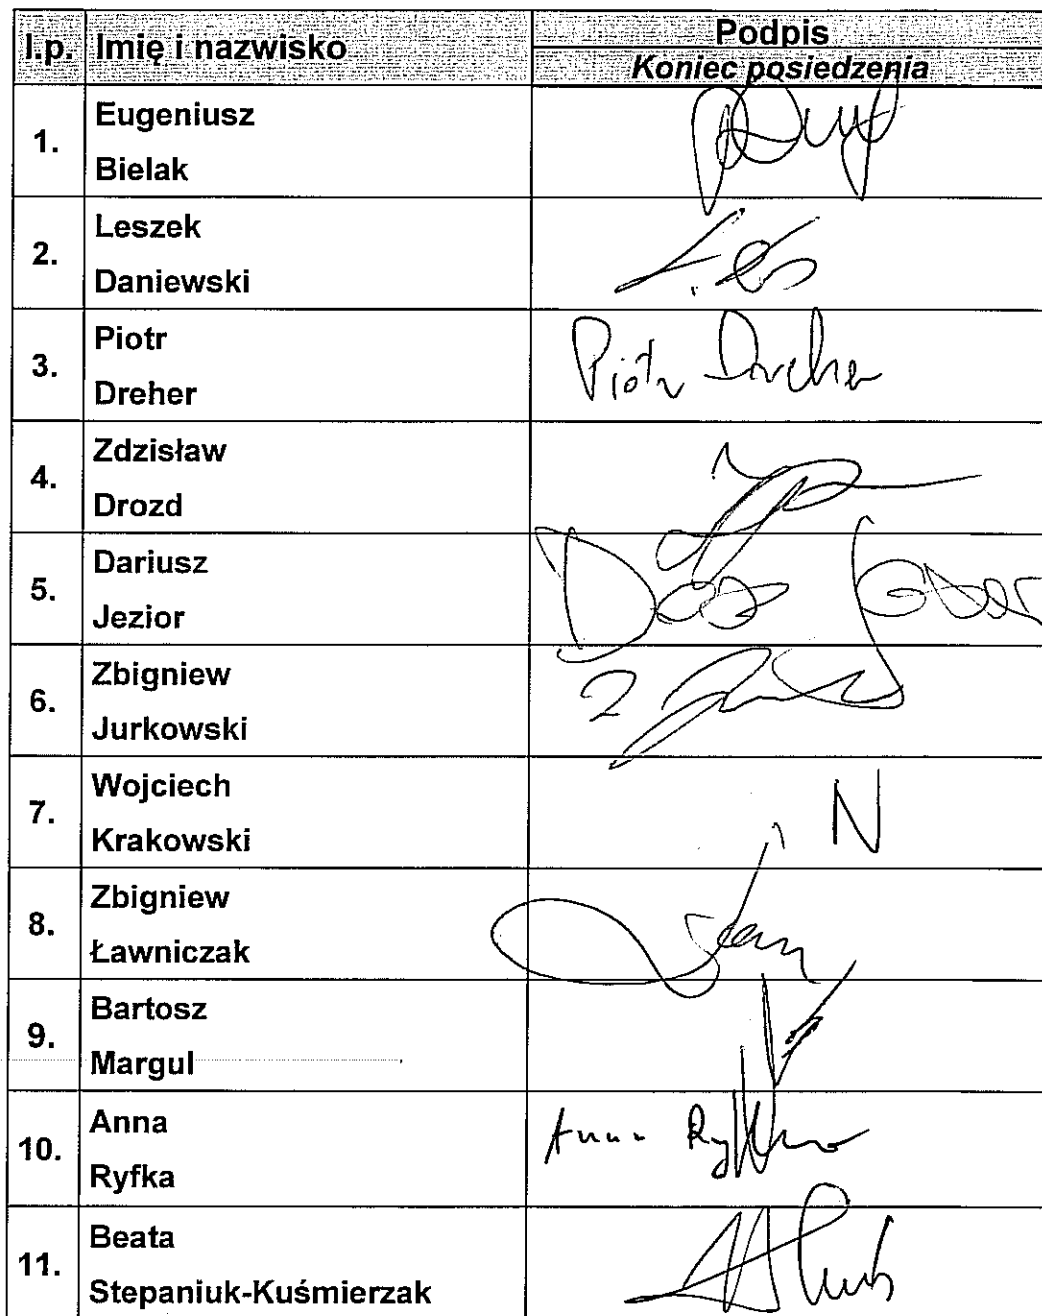 l.p. Imię i nazwisko Podpis
Koniec posiedzenia
1. Eugeniusz
Bielak
2. Leszek
Daniewski
3. Piotr
Dreher
Piotr Dreher
4. Zdzisław
Drozd
5. Dariusz
Jezior
6. Zbigniew
Jurkowski
7. Wojciech
Krakowski
N
8. Zbigniew
Ławniczak
9. Bartosz
Margul
10. Anna
Ryfka
Anna Ryfka
11. Beata
Stepaniuk-Kuśmierzak